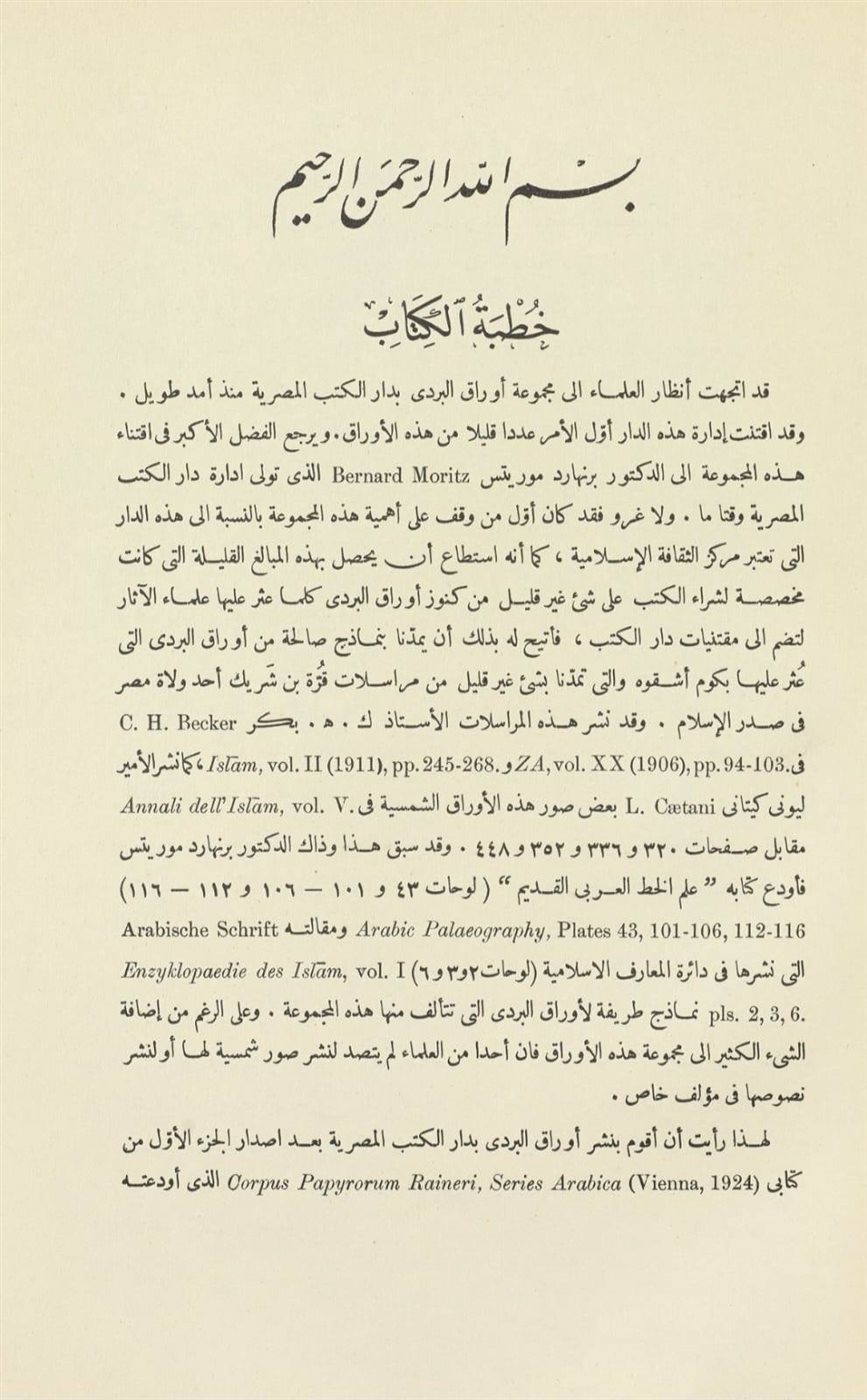 بسم الله الرحمن الرحيم
خُطْبَةُ ٱلْكِتَابِ
قد اتجهت أنظار العلماء الى مجموعة أوراق البردى بدار الكتب المصرية منذ أمد طويل .
وقد اقتنت إدارة هذه الدار أوّل الأمر عددا قليلا من هذه الأوراق . ويرجع الفضل الأكبر فى اقتناء
هذه المجموعة الى الدكتور برنهارد موريتس Bernard Moritz الذى تولى ادارة دار الكتب
المصرية وقتا ما . ولا غرو فقد كان أوّل من وقف على أهمية هذه المجموعة بالنسبة الى هذه الدار
التى تعتبر مركز الثقافة الإسلامية ، كما أنه استطاع أن يحصل بهذه المبالغ القليلة التى كانت
مخصصة لشراء الكتب على شئ غير قليل من كنوز أوراق البردى كلما عثر عليها علماء الآثار
لتضم الى مقتنيات دار الكتب ، فأتيح له بذلك أن يمدّنا بنماذج صالحة من أوراق البردى التى
عُثر عليها بكوم أشقوه والتى تمدّنا بشئ غير قليل من مراسلات قُرّة بن شَريك أحد ولاة مصر
فى صدر الإسلام . وقد نشر هذه المراسلات الأستاذ ك . ه . بكر C. H. Becker
فى ZA, vol. XX (1906), pp. 94-103. و Islām, vol. II (1911), pp. 245-268. ، كما نشر الأمير
ليونى كيتانى L. Cætani بعض صور هذه الأوراق الشمسية فى Annali dell'Islām, vol. V.
مقابل صفحات ٣٢٠ و ٣٣٦ و ٣٥٢ و ٤٤٨ . وقد سبق هذا وذاك الدكتور برنهارد موريتس
فأودع كتابه ” علم الخط العربى القديم “ ( لوحات ٤٣ و ١٠١ — ١٠٦ و ١١٢ — ١١٦ )
Arabic Palaeography, Plates 43, 101-106, 112-116 ومقالته Arabische Schrift
التى نشرها فى دائرة المعارف الاسلامية (لوحات ٢ و ٣ و ٦) Enzyklopaedie des Islām, vol. I
pls. 2, 3, 6. نماذج طريفة لأوراق البردى التى تتألف منها هذه المجموعة . وعلى الرغم من إضافة
الشىء الكثير الى مجموعة هذه الأوراق فان أحدا من العلماء لم يتصد لنشر صور شمسية لها أو لنشر
نصوصها فى مؤلف خاص .
لهذا رأيت أن أقوم بنشر أوراق البردى بدار الكتب المصرية بعد اصدار الجزء الأوّل من
كتابى Corpus Papyrorum Raineri, Series Arabica (Vienna, 1924) الذى أودعته